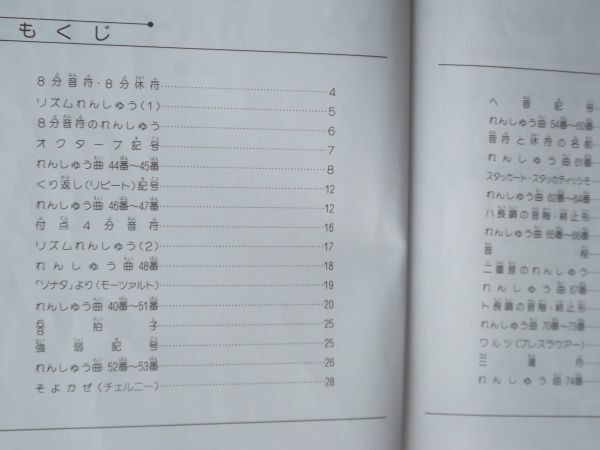 もくじ
8分音符・8分休符 4
リズムれんしゅう(1) 5
8分音符のれんしゅう 6
オクターブ記号 7
れんしゅう曲 44番〜45番 8
くり返し(リピート)記号 12
れんしゅう曲 46番〜47番 12
付点4分音符 16
リズムれんしゅう(2) 17
れんしゅう曲 48番 18
「ソナタ」より(モーツァルト) 19
れんしゅう曲 40番〜51番 20
6/8拍子 25
強弱記号 25
れんしゅう曲 52番〜53番 26
そよかぜ(チェルニー) 28
ヘ音記号
れんしゅう曲 54番〜60番
音符と休符の名前
れんしゅう曲 61番
スタッカート・スタッカティッシモ
れんしゅう曲 62番〜64番
ハ長調の音階・終止形
れんしゅう曲 65番〜66番
音程
二重音のれんしゅう
れんしゅう曲 67番
ト長調の音階・終止形
れんしゅう曲 70番〜73番
ワルツ(プレスラウアー)
三連符
れんしゅう曲 74番